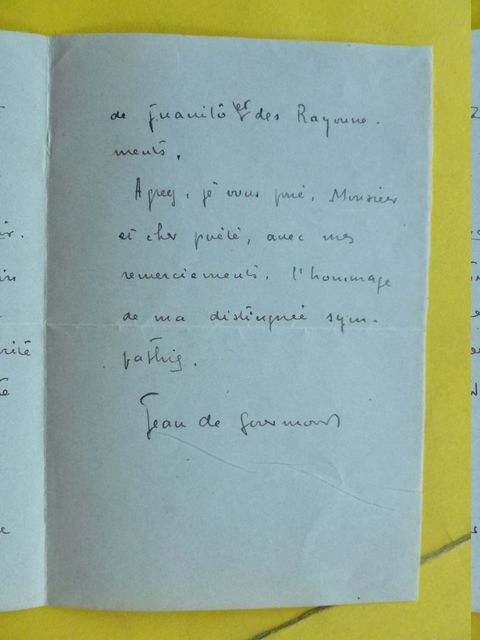 de Juanito et des Rayonne-
ments.
Agréez, je vous prie, Monsieur
et cher poète, avec mes
remerciements, l'hommage
de ma distinguée sym-
pathie.
Jean de Gourmont